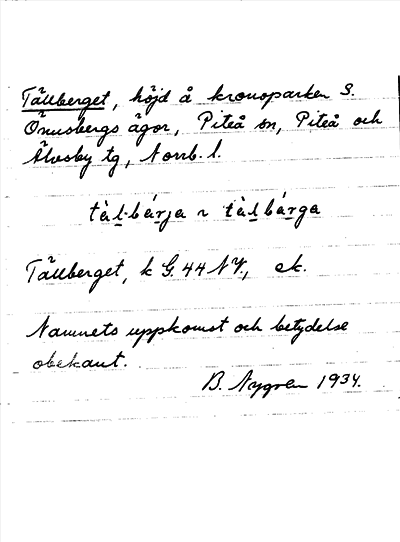 Tällberget, höjd å kronoparken S.
Önusbergs ägor, Piteå sn, Piteå och
Älvsby tg, Norrb. l.
tàl·bárja ~ tàlbárga
Tällberget, k G. 44 NV., ek.
Namnets uppkomst och betydelse
obekant.
B. Nygren 1934.